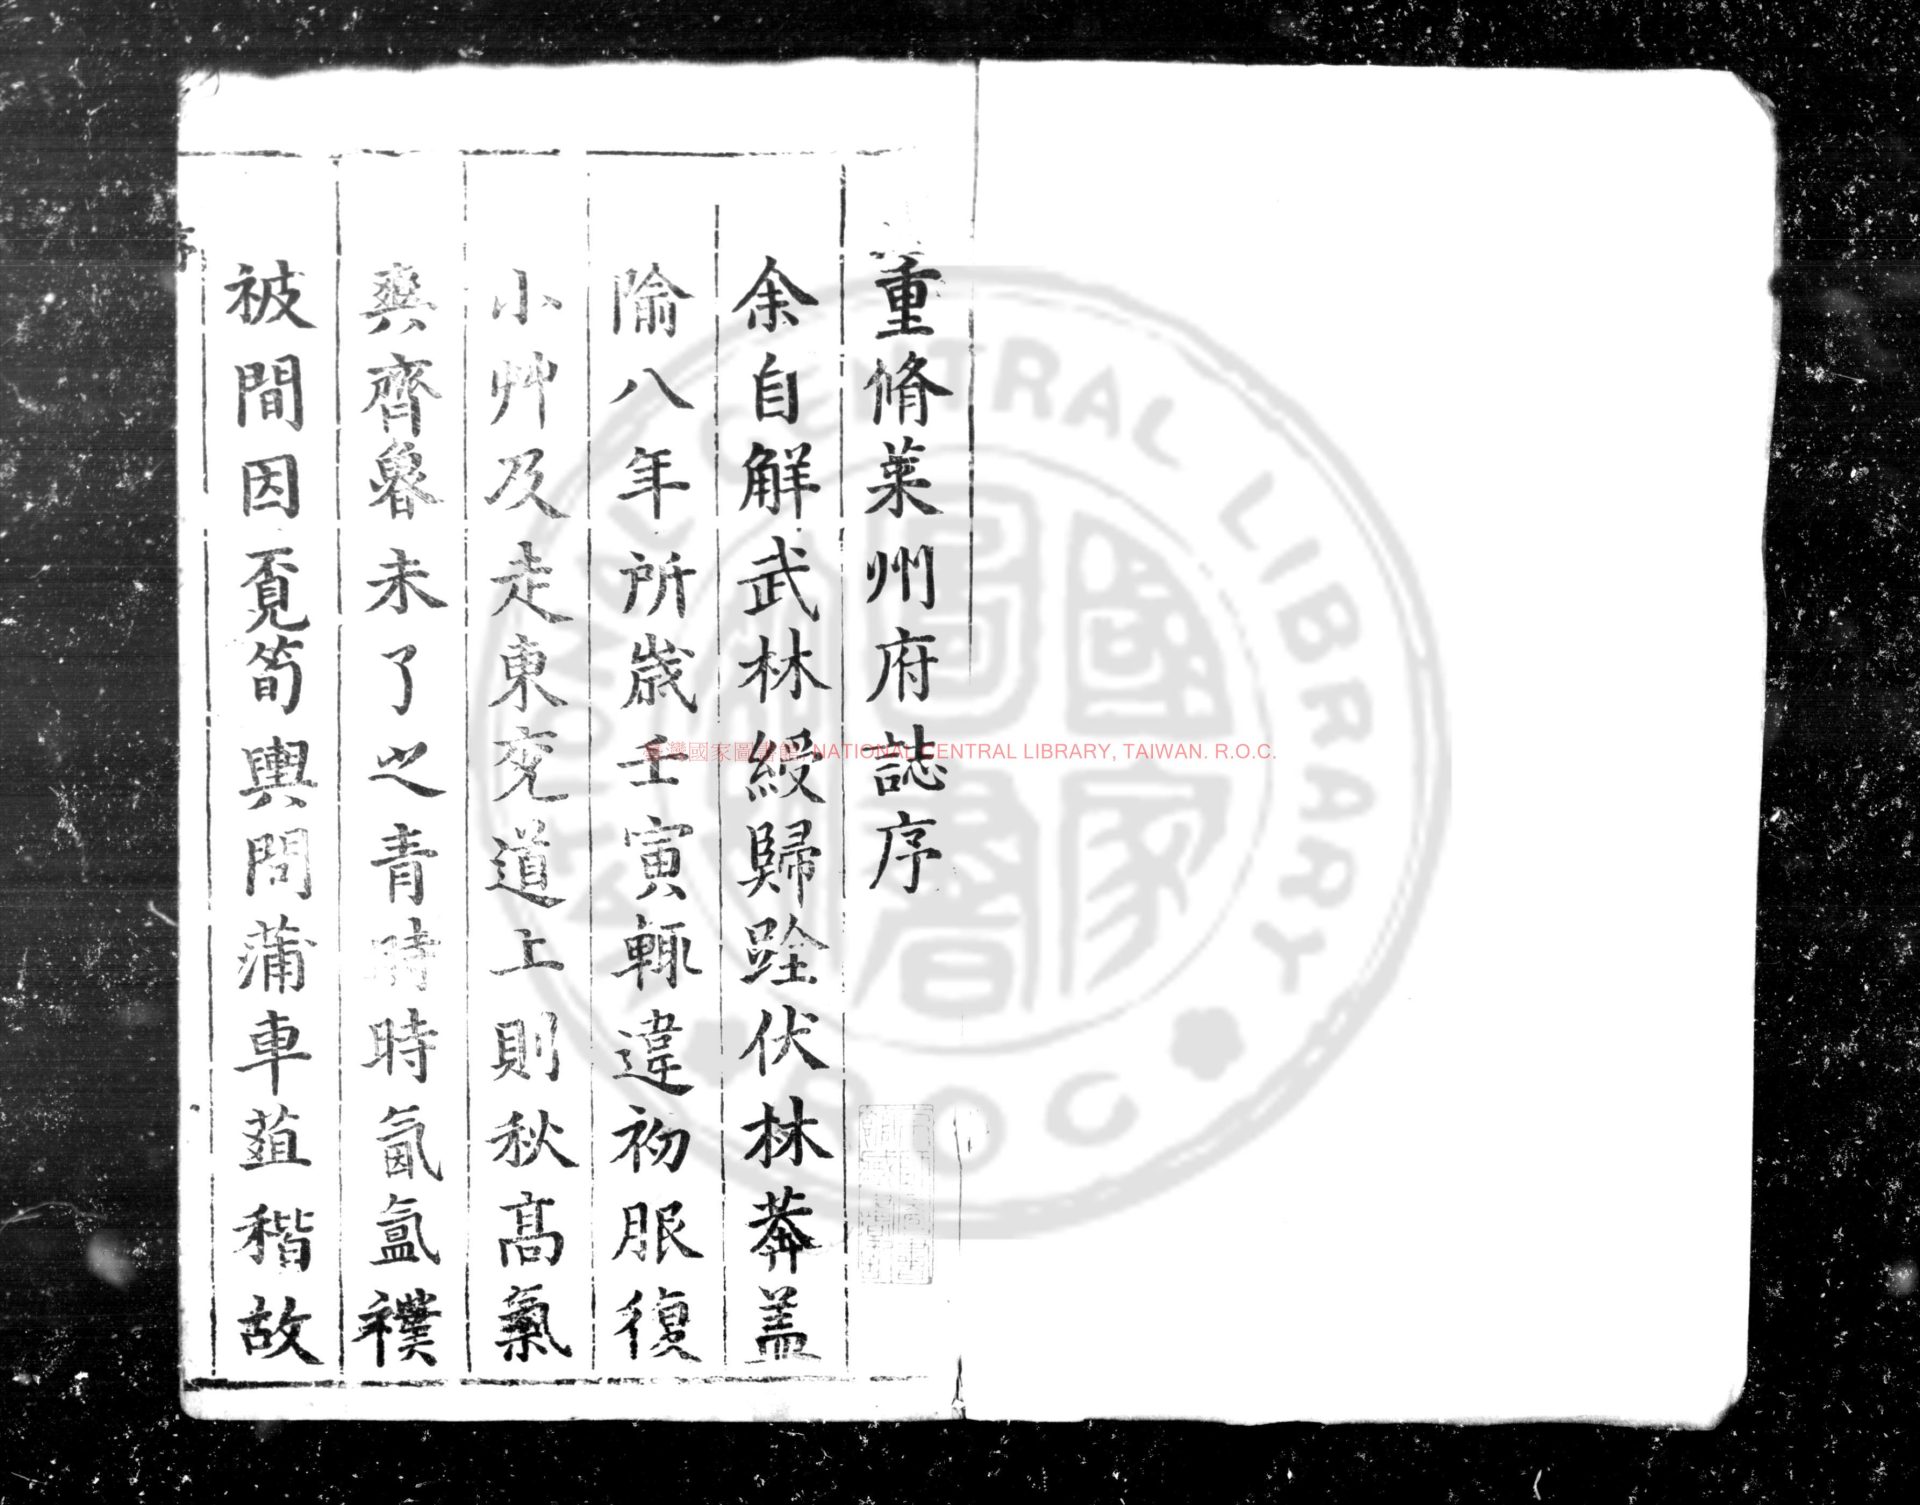 重脩萊州府誌序
余自解武林綬歸跧伏林莽蓋
隃八年所歲壬寅輒違初服復
小艸及走東兗道上則秋高氣
爽齊魯未了之青時時氤氳襆
被間因覔筍輿問蒲車葅稭故
臺灣國家圖書館, NATIONAL CENTRAL LIBRARY, TAIWAN. R.O.C.
NATIONAL CENTRAL LIBRARY
R.O.C.
國家圖書